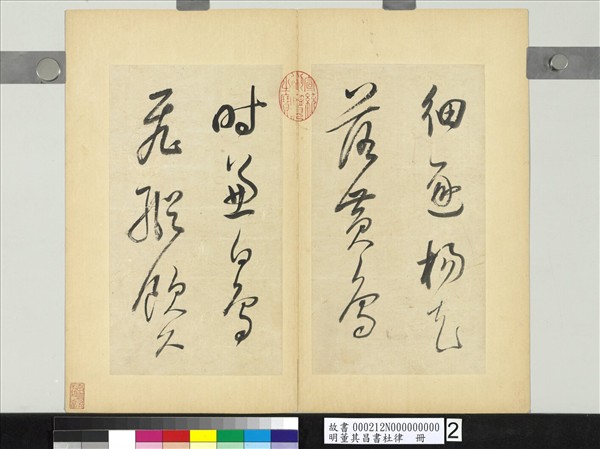 细逐杨花
落黄鸟
时兼白鸟
飞纵饮久
故書 000212N000000000
明董其昌書杜律 冊
2